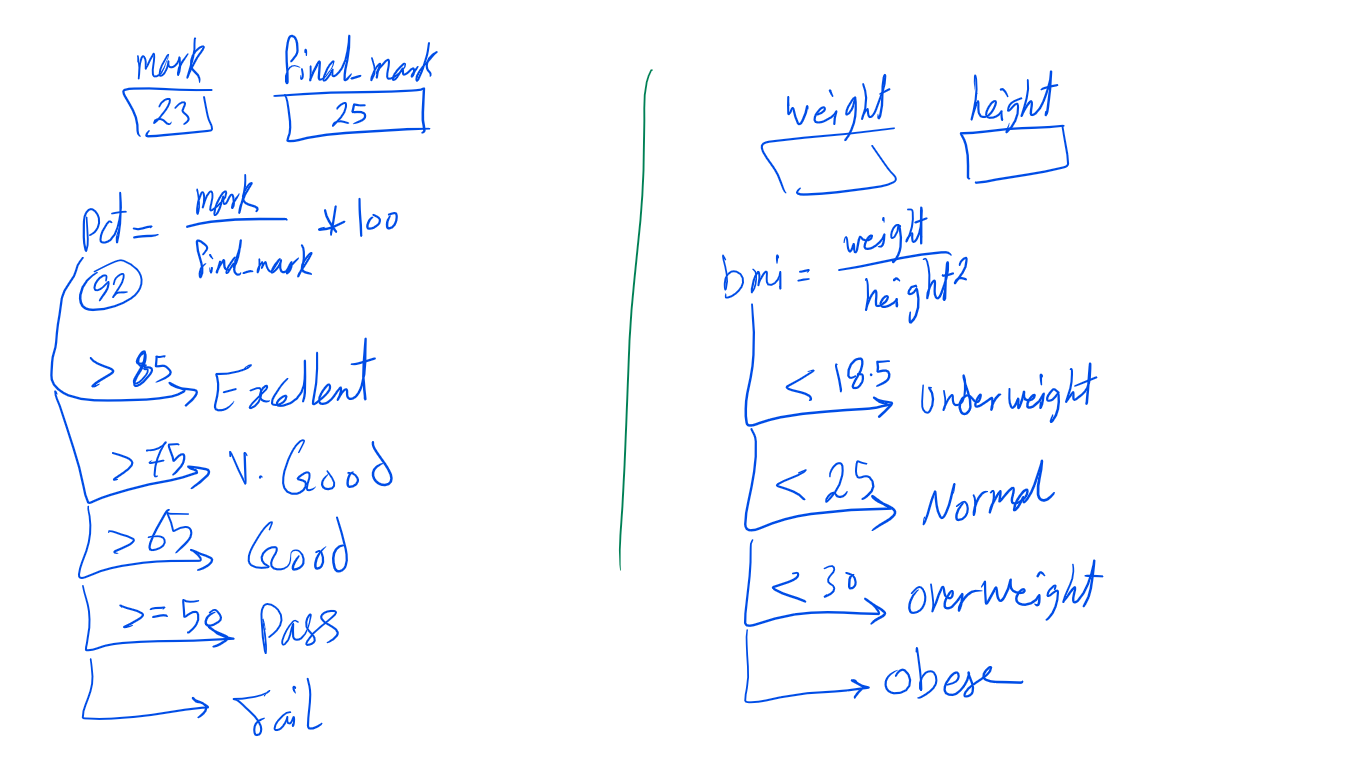 mark final_mark
23 25
Pct = mark / final_mark * 100
92
> 85 Excellent
> 75 V. Good
> 65 Good
>= 50 Pass
Fail
weight height
bmi = weight / height²
< 18.5 Underweight
< 25 Normal
< 30 overweight
obese